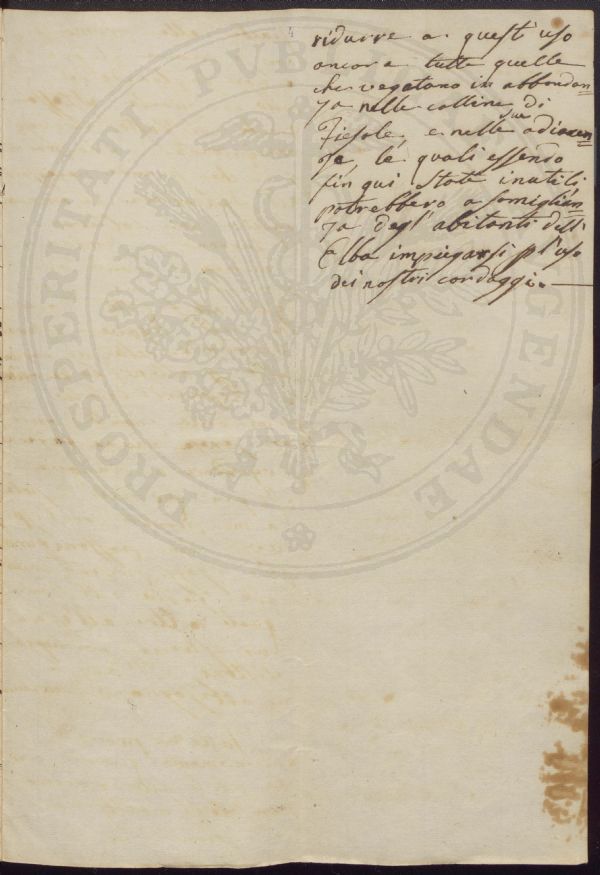 4
ridurre a quest'uso
ancora tutte quelle
che vegetano in abbondan=
za nelle colline di
Fiesole, e nelle sue adiacen=
ze, le quali essendo
fin qui state inutili
potrebbero a somiglian=
za degl'abitanti dell'
Elba impiegarsi pl'uso
dei nostri cordaggi.
PROSPERITATI PUBLICAE AUGENDAE